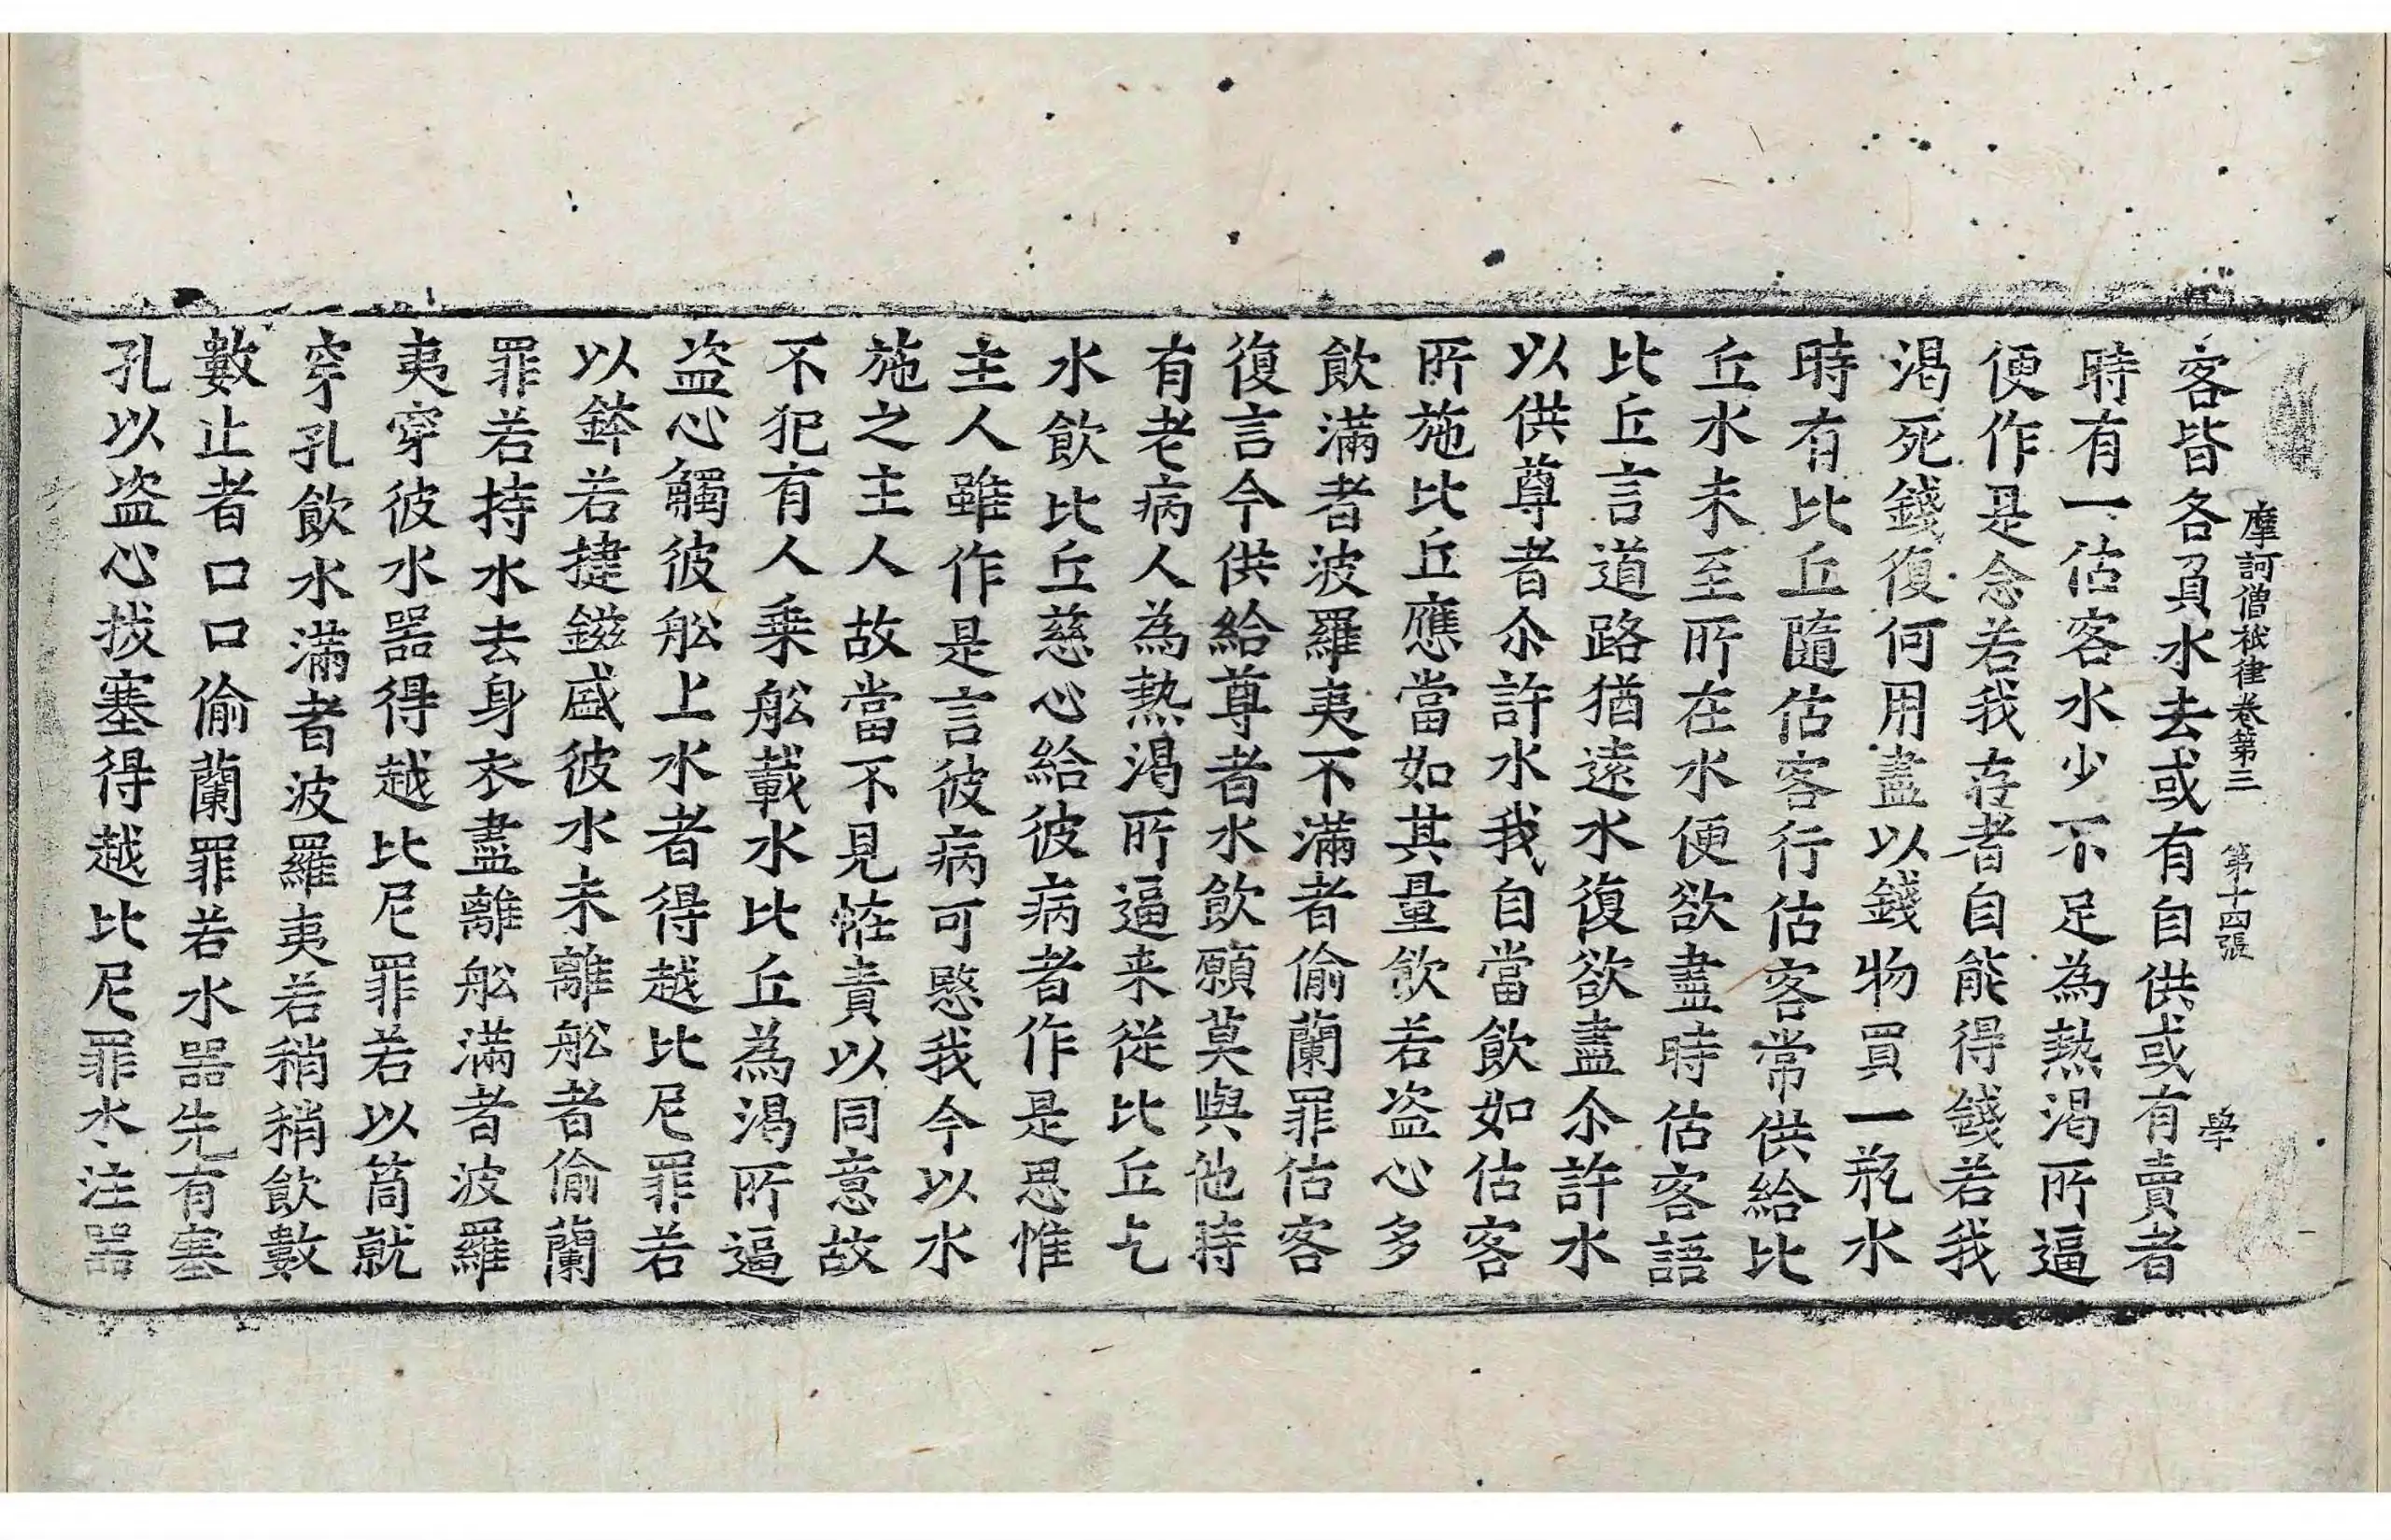 摩訶僧祇律卷第三 第十四張 學
客皆各負水去或有自供或有賣者
時有一估客水少不足為熱渴所逼
便作是念若我存者自能得錢若我
渴死錢復何用盡以錢物買一瓶水
時有比丘隨估客行估客常供給比
丘水未至所在水便欲盡時估客語
比丘言道路猶遠水復欲盡尒許水
以供尊者尒許水我自當飲如估客
所施比丘應當如其量飲若盜心多
飲滿者波羅夷不滿者偷蘭罪估客
復言今供給尊者水飲願莫與他時
有老病人為熱渴所逼来從比丘乞
水飲比丘慈心給彼病者作是思惟
主人雖作是言彼病可愍我今以水
施之主人故當不見恠責以同意故
不犯有人乗舩載水比丘為渴所逼
盜心觸彼舩上水者得越比尼罪若
以鉢若揵鎡盛彼水未離舩者偷蘭
罪若持水去身衣盡離舩滿者波羅
夷穿彼水器得越比尼罪若以筒就
穿孔飲水滿者波羅夷若稍稍飲數
數止者口口偷蘭罪若水器先有塞
孔以盜心拔塞得越比尼罪水注器